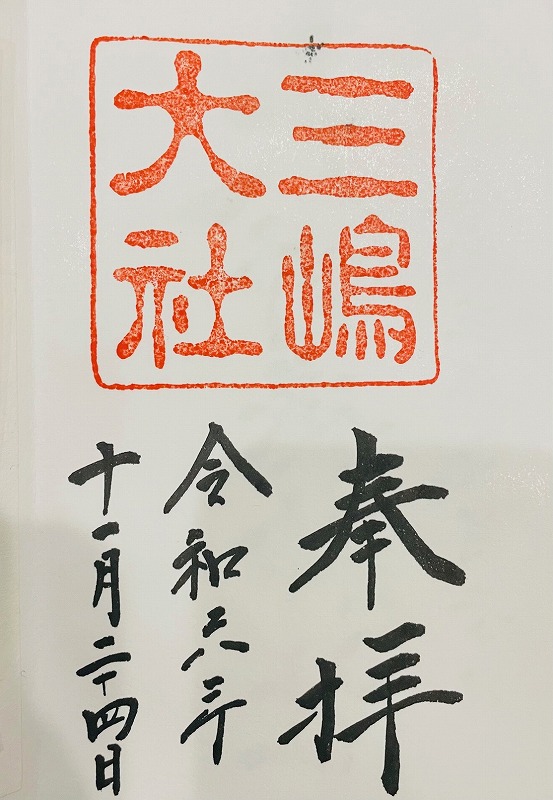 三嶋
大社
奉拝
令和六年
十一月二十四日